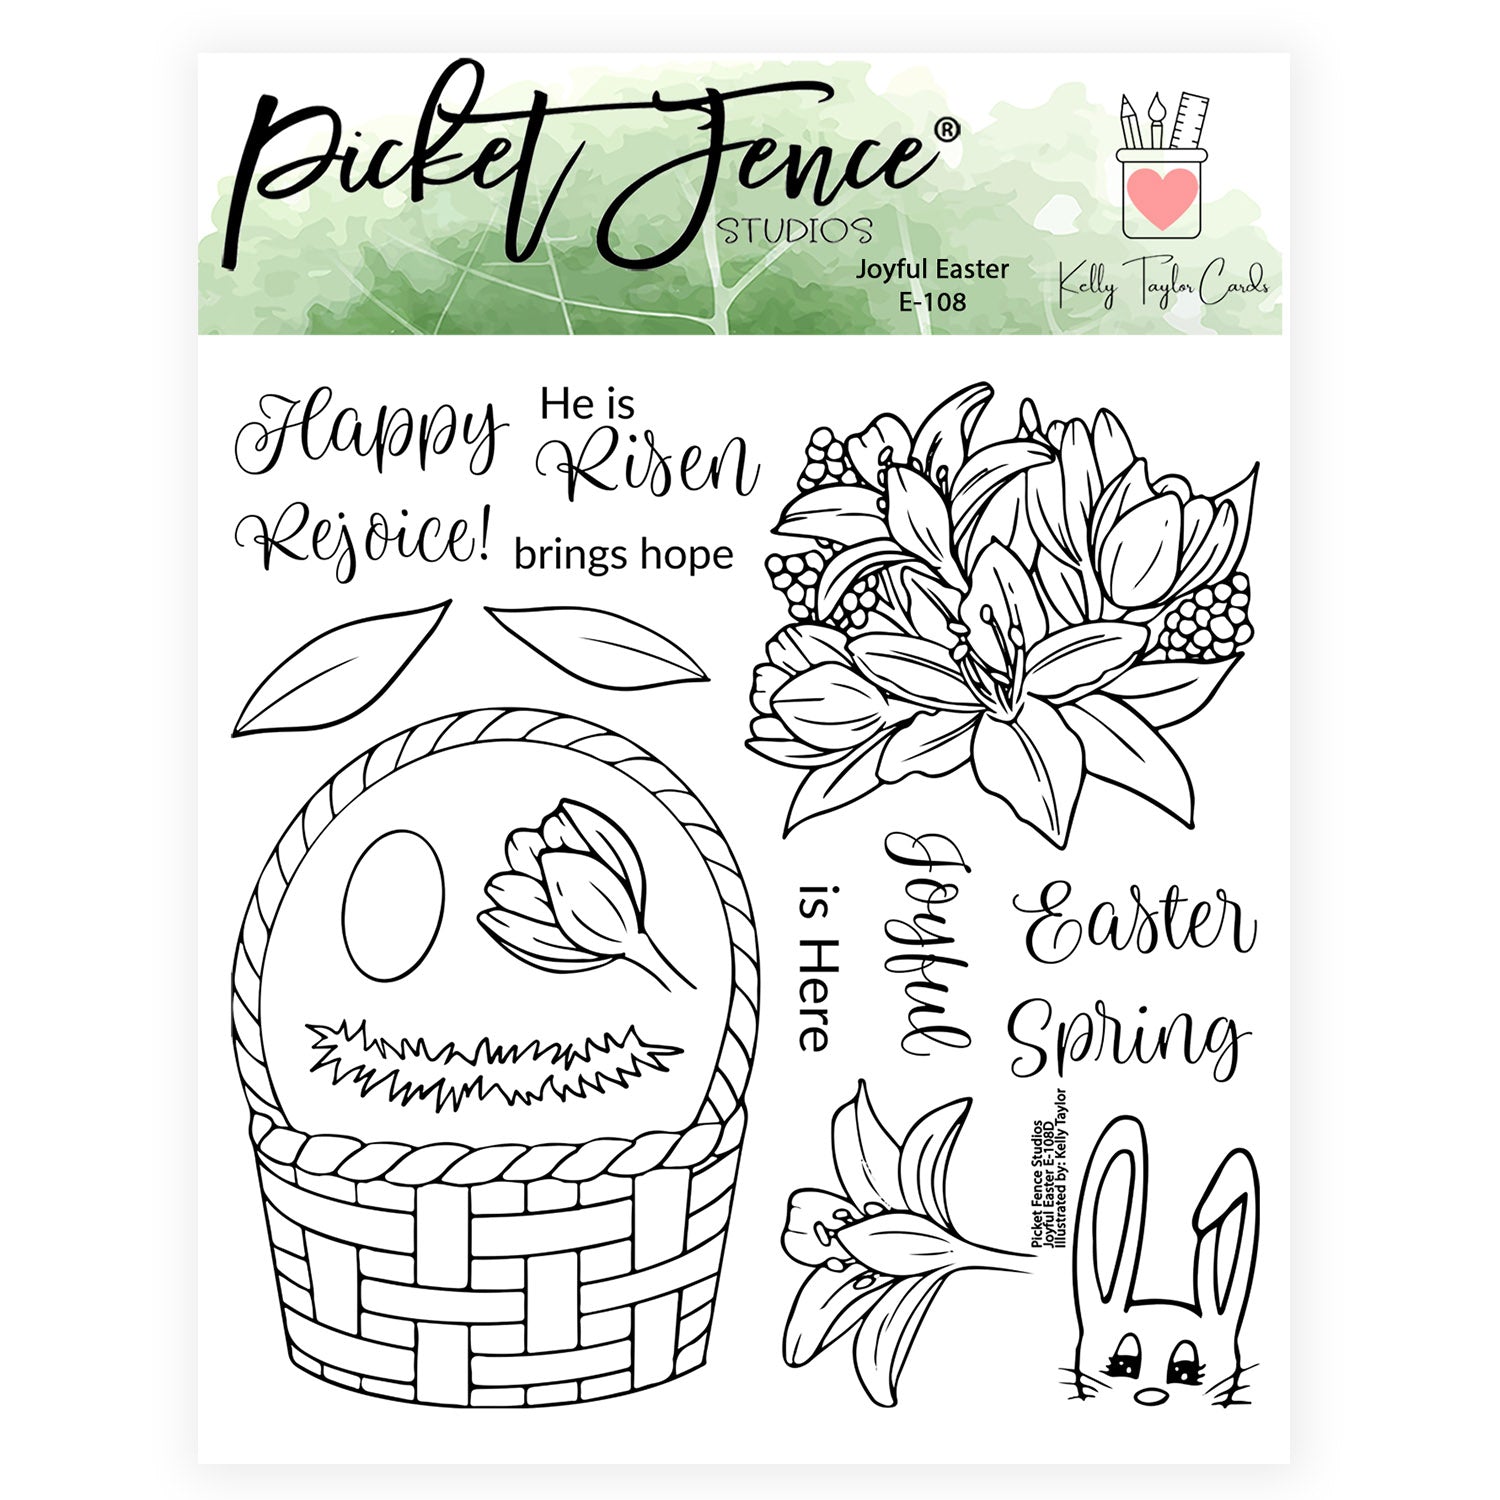 Picket Fence®
STUDIOS
Joyful Easter
E-108
Kelly Taylor Cards
Happy
He is
Risen
Rejoice!
brings hope
is Here
Joyful
Easter
Spring
Picket Fence Studios
Joyful Easter E-108D
Illustrated by: Kelly Taylor